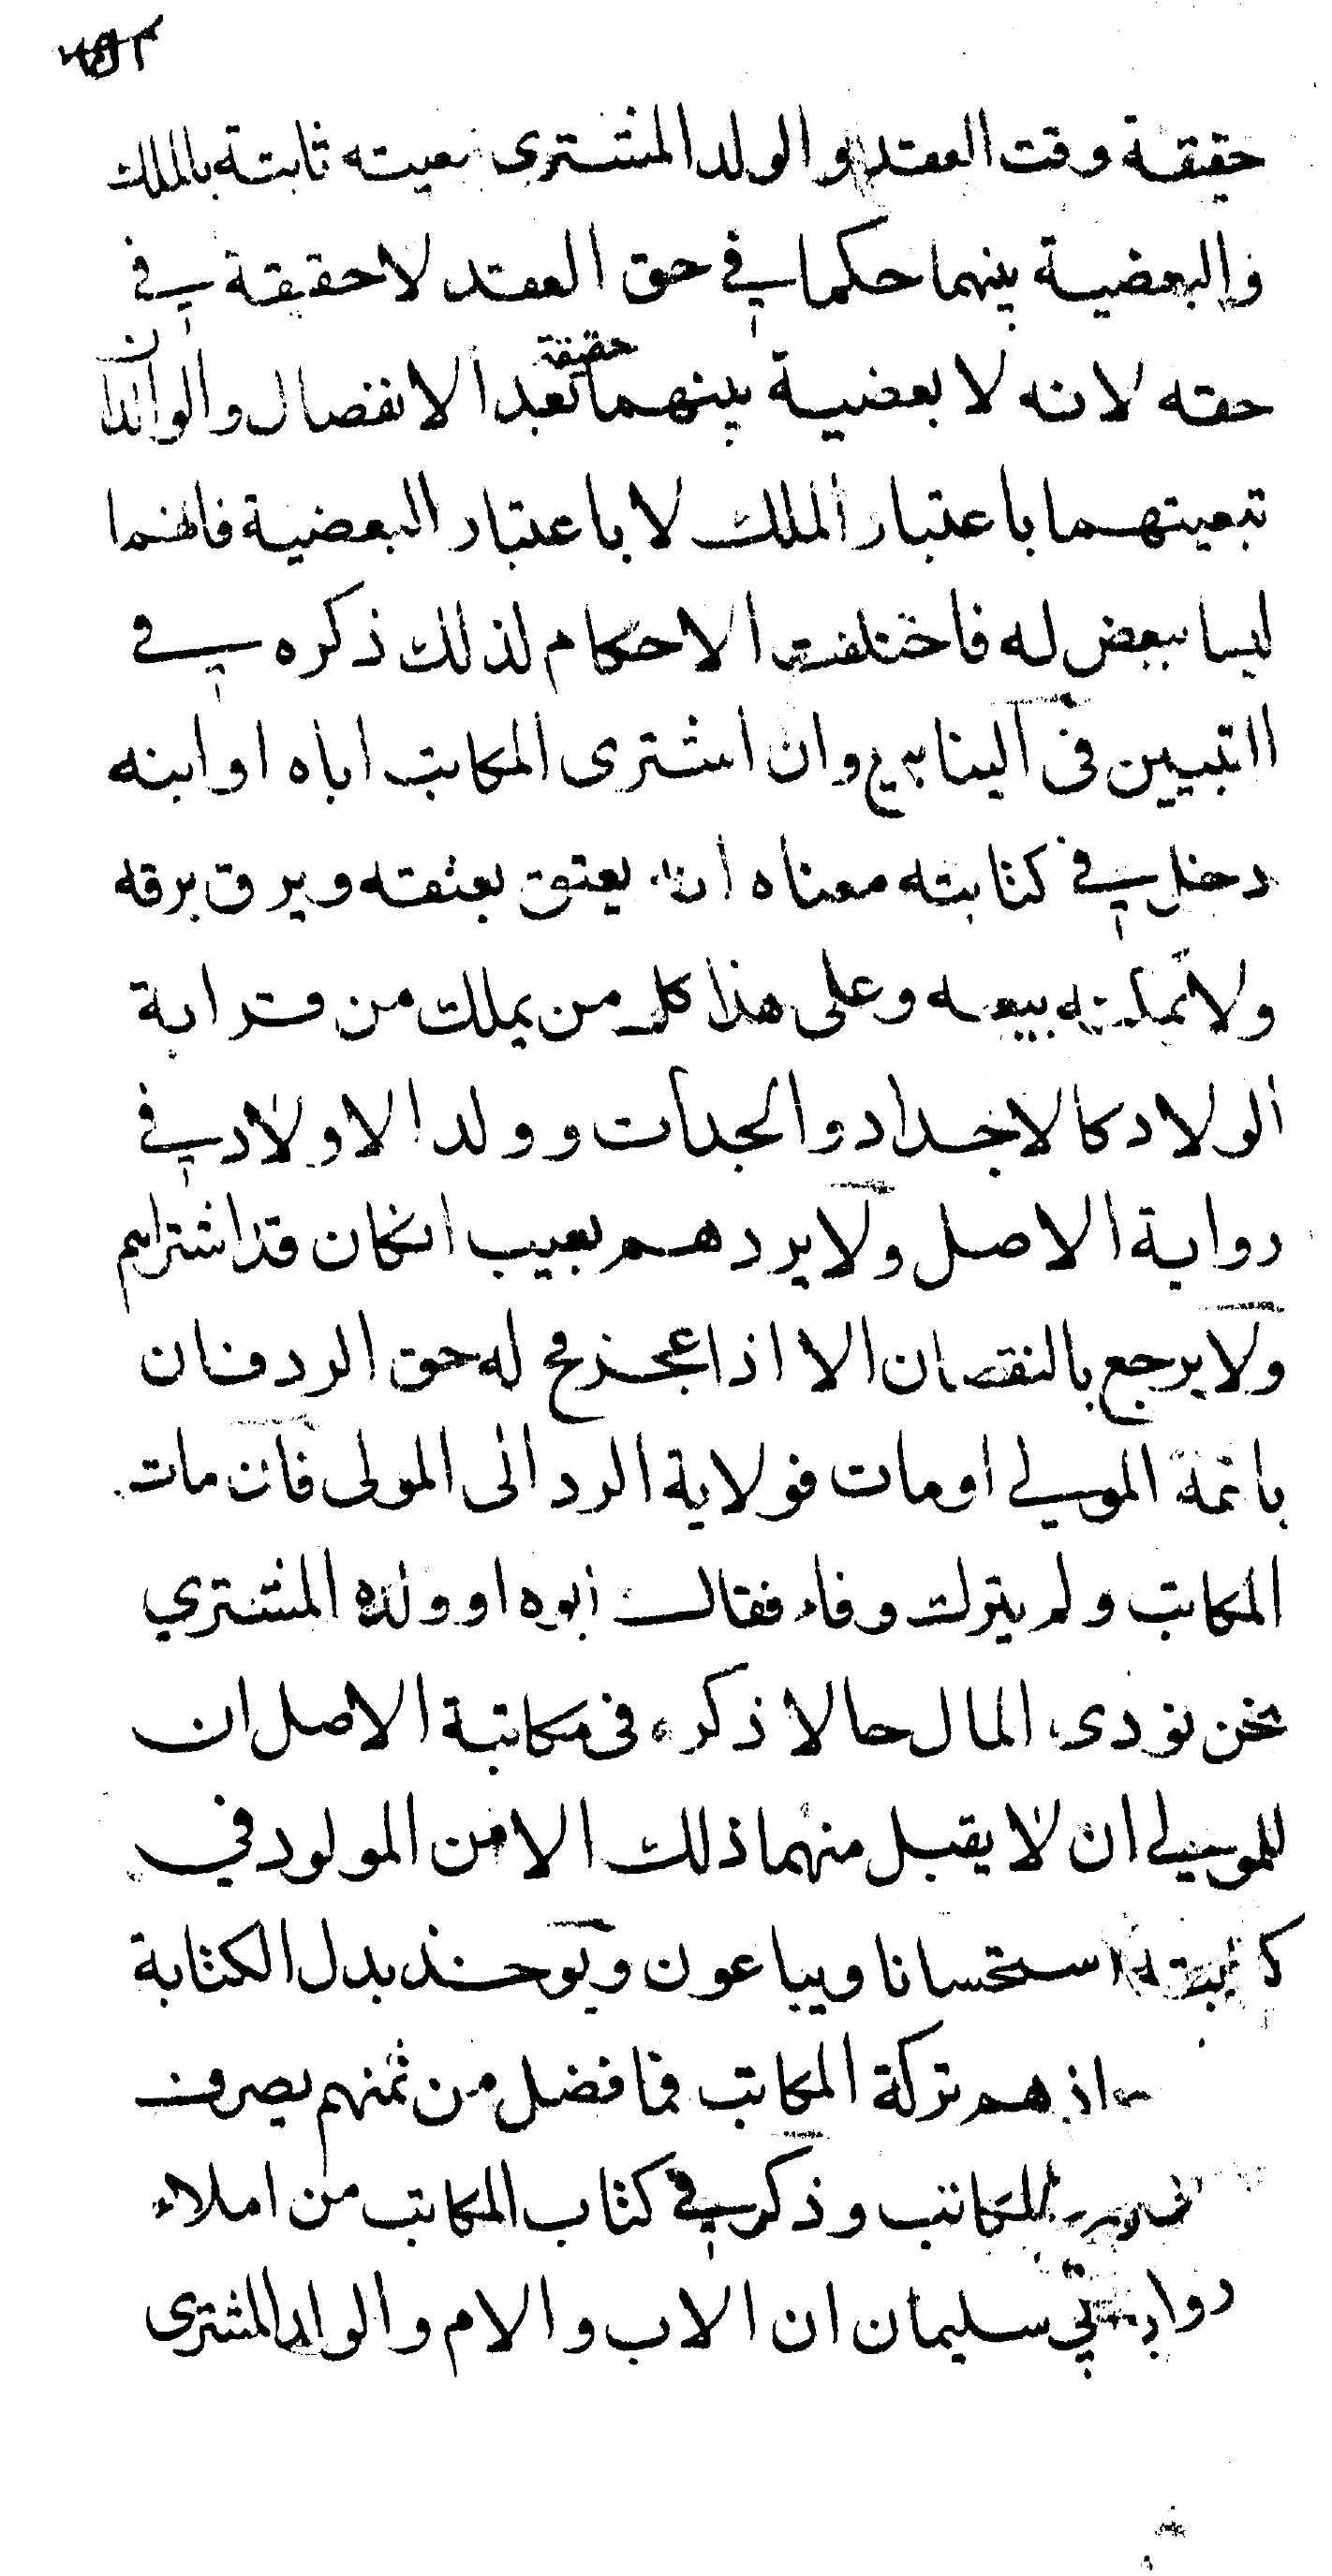 حقيقة وقت العقد والولد المشترى تبعيته ثابتة بالملك
والبعضية بينهما حكما في حق العقد لا حقيقة في
حقه لانه لا بعضية بينهما حقيقة بعد الانفصال والوالدان
تبعيتهما باعتبار الملك لا باعتبار البعضية فانهما
ليسا ببعض له فاختلفت الاحكام لذلك ذكره في
التبيين فى الينابيع وان اشترى المكاتب اباه او ابنه
دخل في كتابته معناه انه يعتق بعتقه ويرق برقه
ولا يمكنه بيعه وعلى هذا كل من يملك من قرابة
الولاد كالاجداد والجدات وولد الاولاد في
رواية الاصل ولا يردهم بعيب انكان قد اشتراهم
ولا يرجع بالنقصان الا اذا عجز فح له حق الرد فان
باعه المولي او مات فولاية الرد الى المولى فان مات
المكاتب ولم يترك وفاء فقال ابوه او ولده المشتري
نحن نودى المال حالا ذكر فى مكاتبة الاصل ان
للمولي ان لا يقبل منهما ذلك الا من المولود في
كتابته استحسانا ويباعون ويوخذ بدل الكتابة
اذ هم تركة المكاتب فما فضل من ثمنهم يصرف
المكاتب وذكر في كتاب المكاتب من املاء
رواية ابي سليمان ان الاب والام والولد المشترى